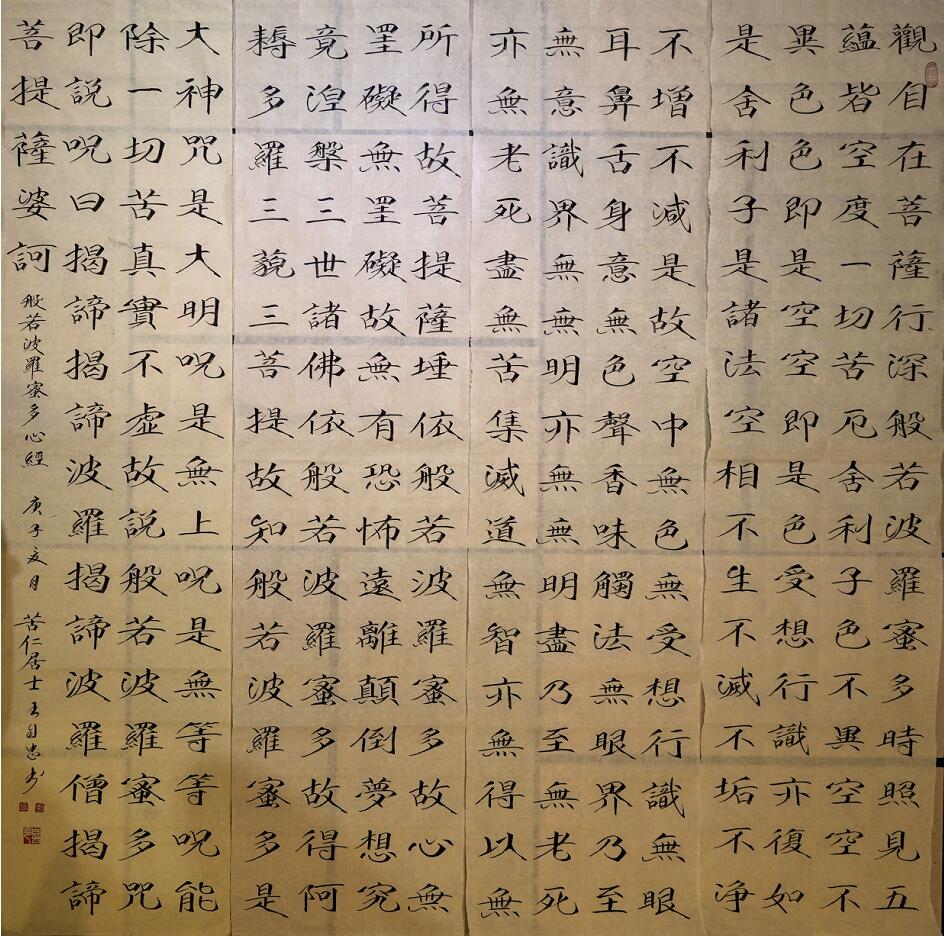 觀自在菩薩行深般若波羅蜜多時照見五
蘊皆空度一切苦厄舍利子色不異空空不
異色色即是空空即是色受想行識亦復如
是舍利子是諸法空相不生不滅不垢不净
不增不減是故空中無色無受想行識無眼
耳鼻舌身意無色聲香味觸法無眼界乃至
無意識界無無明亦無無明盡乃至無老死
亦無老死盡無苦集滅道無智亦無得以無
所得故菩提薩埵依般若波羅蜜多故心無
罣礙無罣礙故無有恐怖遠離顛倒夢想究
竟涅槃三世諸佛依般若波羅蜜多故得阿
耨多羅三藐三菩提故知般若波羅蜜多是
大神咒是大明呪是無上呪是無等等呪能
除一切苦真實不虛故說般若波羅蜜多咒
即說呪曰揭諦揭諦波羅揭諦波羅僧揭諦
菩提薩婆訶
般若波羅蜜多心經 庚子月 苦仁居士王自忠书